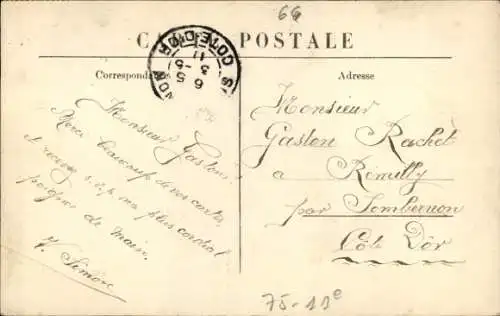 66
CARTE POSTALE
Correspondance
Adresse
COTE-D'OR
6 5
3 -5
11
Monsieur Gaston
Merci beaucoup de vos cartes
et recevez s.v.p. ma plus cordial
poignée de main.
V. Simon
Monsieur
Gaston Rachet
a Rémilly
par Sombernon
Côte D'ôr
75-11e